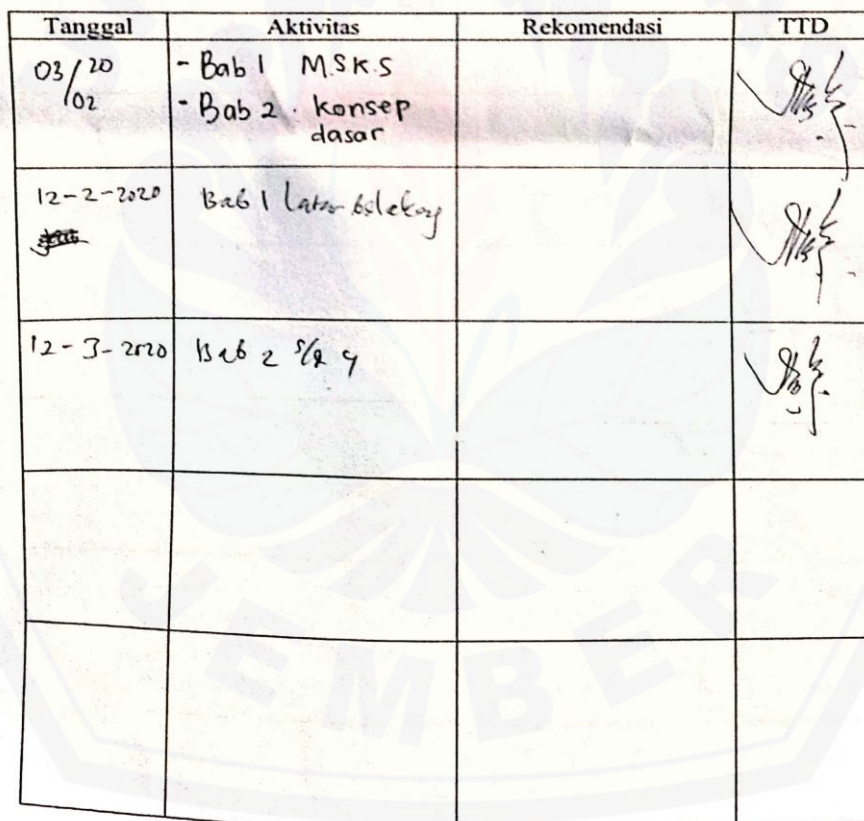 Tanggal Aktivitas Rekomendasi TTD
03/20 - Bab 1 M.SK.S
/02 - Bab 2. konsep
dasar
12-2-2020 Bab 1 latar belakang
12-3-2020 Bab 2 s/d 4
JEMBER